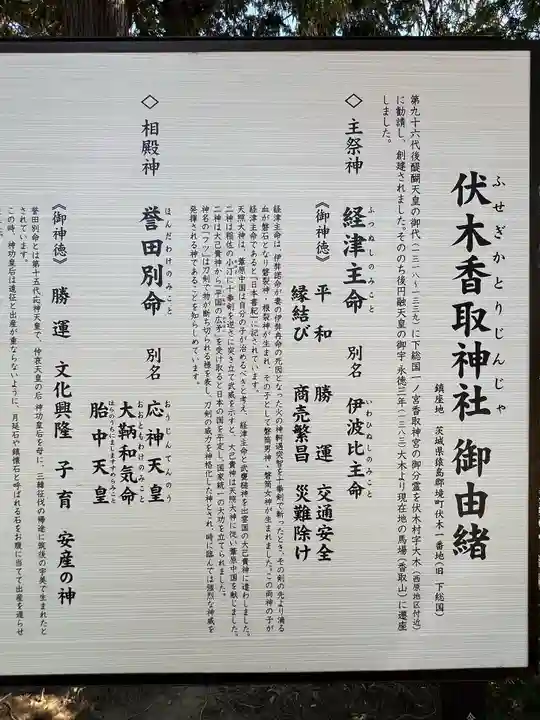 ふせぎかとりじんじゃ
伏木香取神社 御由緒
鎮座地 茨城県猿島郡境町伏木一番地(旧 下総国)
第九十六代後醍醐天皇の御代(一三一八〜一三三九)に下総国一ノ宮香取神宮の御分霊を伏木村字大木(西原地区付近)
に勧請し、創建されました。そののち後円融天皇の御宇 永徳三年(一三八三)大木より現在地の馬場(香取山)に遷座
しました。
◇ 主祭神 経津主命 別名 伊波比主命
ふつぬしのみこと いわひぬしのみこと
《御神徳》 平和 勝運 交通安全
縁結び 商売繁昌 災難除け
経津主命は、伊弉諾命が妻の伊弉冉命の死因となった火の神軻遇突智を十拳剣で斬ったとき、その剣の先より滴る
血が磐石となり磐裂神・根裂神が生まれ、その子として磐筒男神・磐筒女神が生まれました。この両神の子が
経津主命であると『日本書紀』に記されています。
天照大神は、葦原中国は自分の子が治めるべきと考え、経津主命と武甕槌神を出雲国の大己貴神に遣わしました。
二神は稲佐の小汀に十拳剣を逆さに突き立て武威を示すと、大己貴神は天照大神に従い葦原中国を献じました。
二神は大己貴神から「平国の広矛」を受け取ると日本の国を平定し、国家統一の大功を立てられました。
神名の「フツ」は刀剣で物が断ち切られる様を表し、刀剣の威力を神格化した神とされ、時に臨んでは強烈な神威を
発揮される神であることを知らしめています。
◇ 相殿神 誉田別命 別名 応神天皇
ほんだわけのみこと おうじんてんのう
大鞆和気命
おおともわけのみこと
胎中天皇
はらのうちにましますすめらみこと
《御神徳》 勝運 文化興隆 子育 安産の神
誉田別命とは第十五代応神天皇で、仲哀天皇の后 神功皇后を母に、三韓征伐の帰途に筑後の宇美で生まれたと
されています。
この時、神功皇后は遠征と出産が重ならないように、月延石や鎮懐石と呼ばれる石をお腹に当てて出産を遅らせ